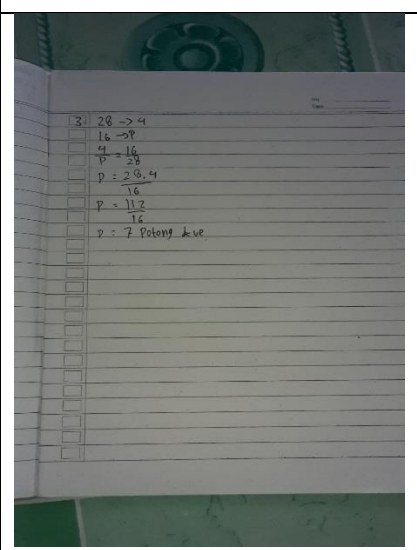 3 28 -> 4
16 -> P
4/P = 16/28
P = 28.4/16
P = 112/16
P = 7 Potong kue